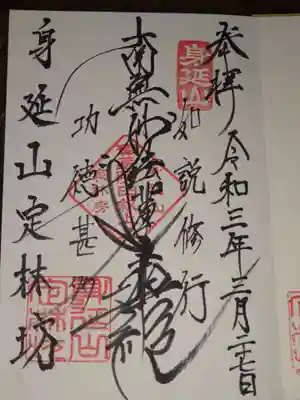 奉拝 令和三年三月二十七日
身延山
如説修行
南無妙法蓮華経
功徳甚
身延山定林坊